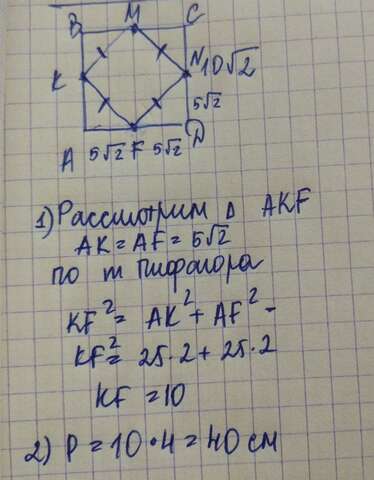 B M C
K N 10√2
5√2
A 5√2 F 5√2 D
1) Рассмотрим Δ AKF
AK = AF = 5√2
по т Пифагора
KF² = AK² + AF² -
KF² = 25·2 + 25·2
KF = 10
2) P = 10·4 = 40 см